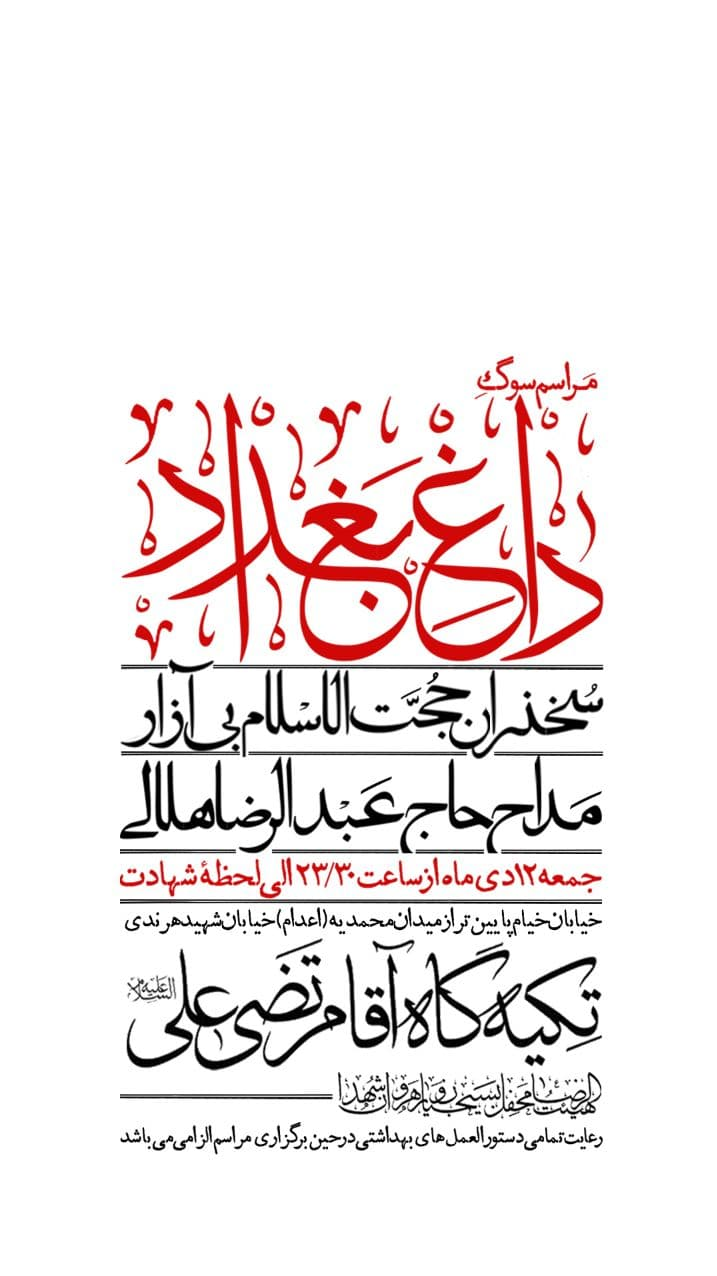 مراسم سوگِ
داغِ بغداد
سُخنران حجَّت الاسلام بی آزار
مَداح حاج عَبْدالرضا هلالی
جمعه ۱۲ دی ماه از ساعت ۲۳/۳۰ الی لحظهٔ شهادت
خیابان خیام پایین تر از میدان محمدیه (اعدام) خیابان شهید هرندی
تِکیه گاه آقا مرتَضی علی علیه السلام
هیئت الرضا محفل بسیجیان و رهروان شهدا
رعایت تمامی دستورالعمل های بهداشتی در حین برگزاری مراسم الزامی می باشد